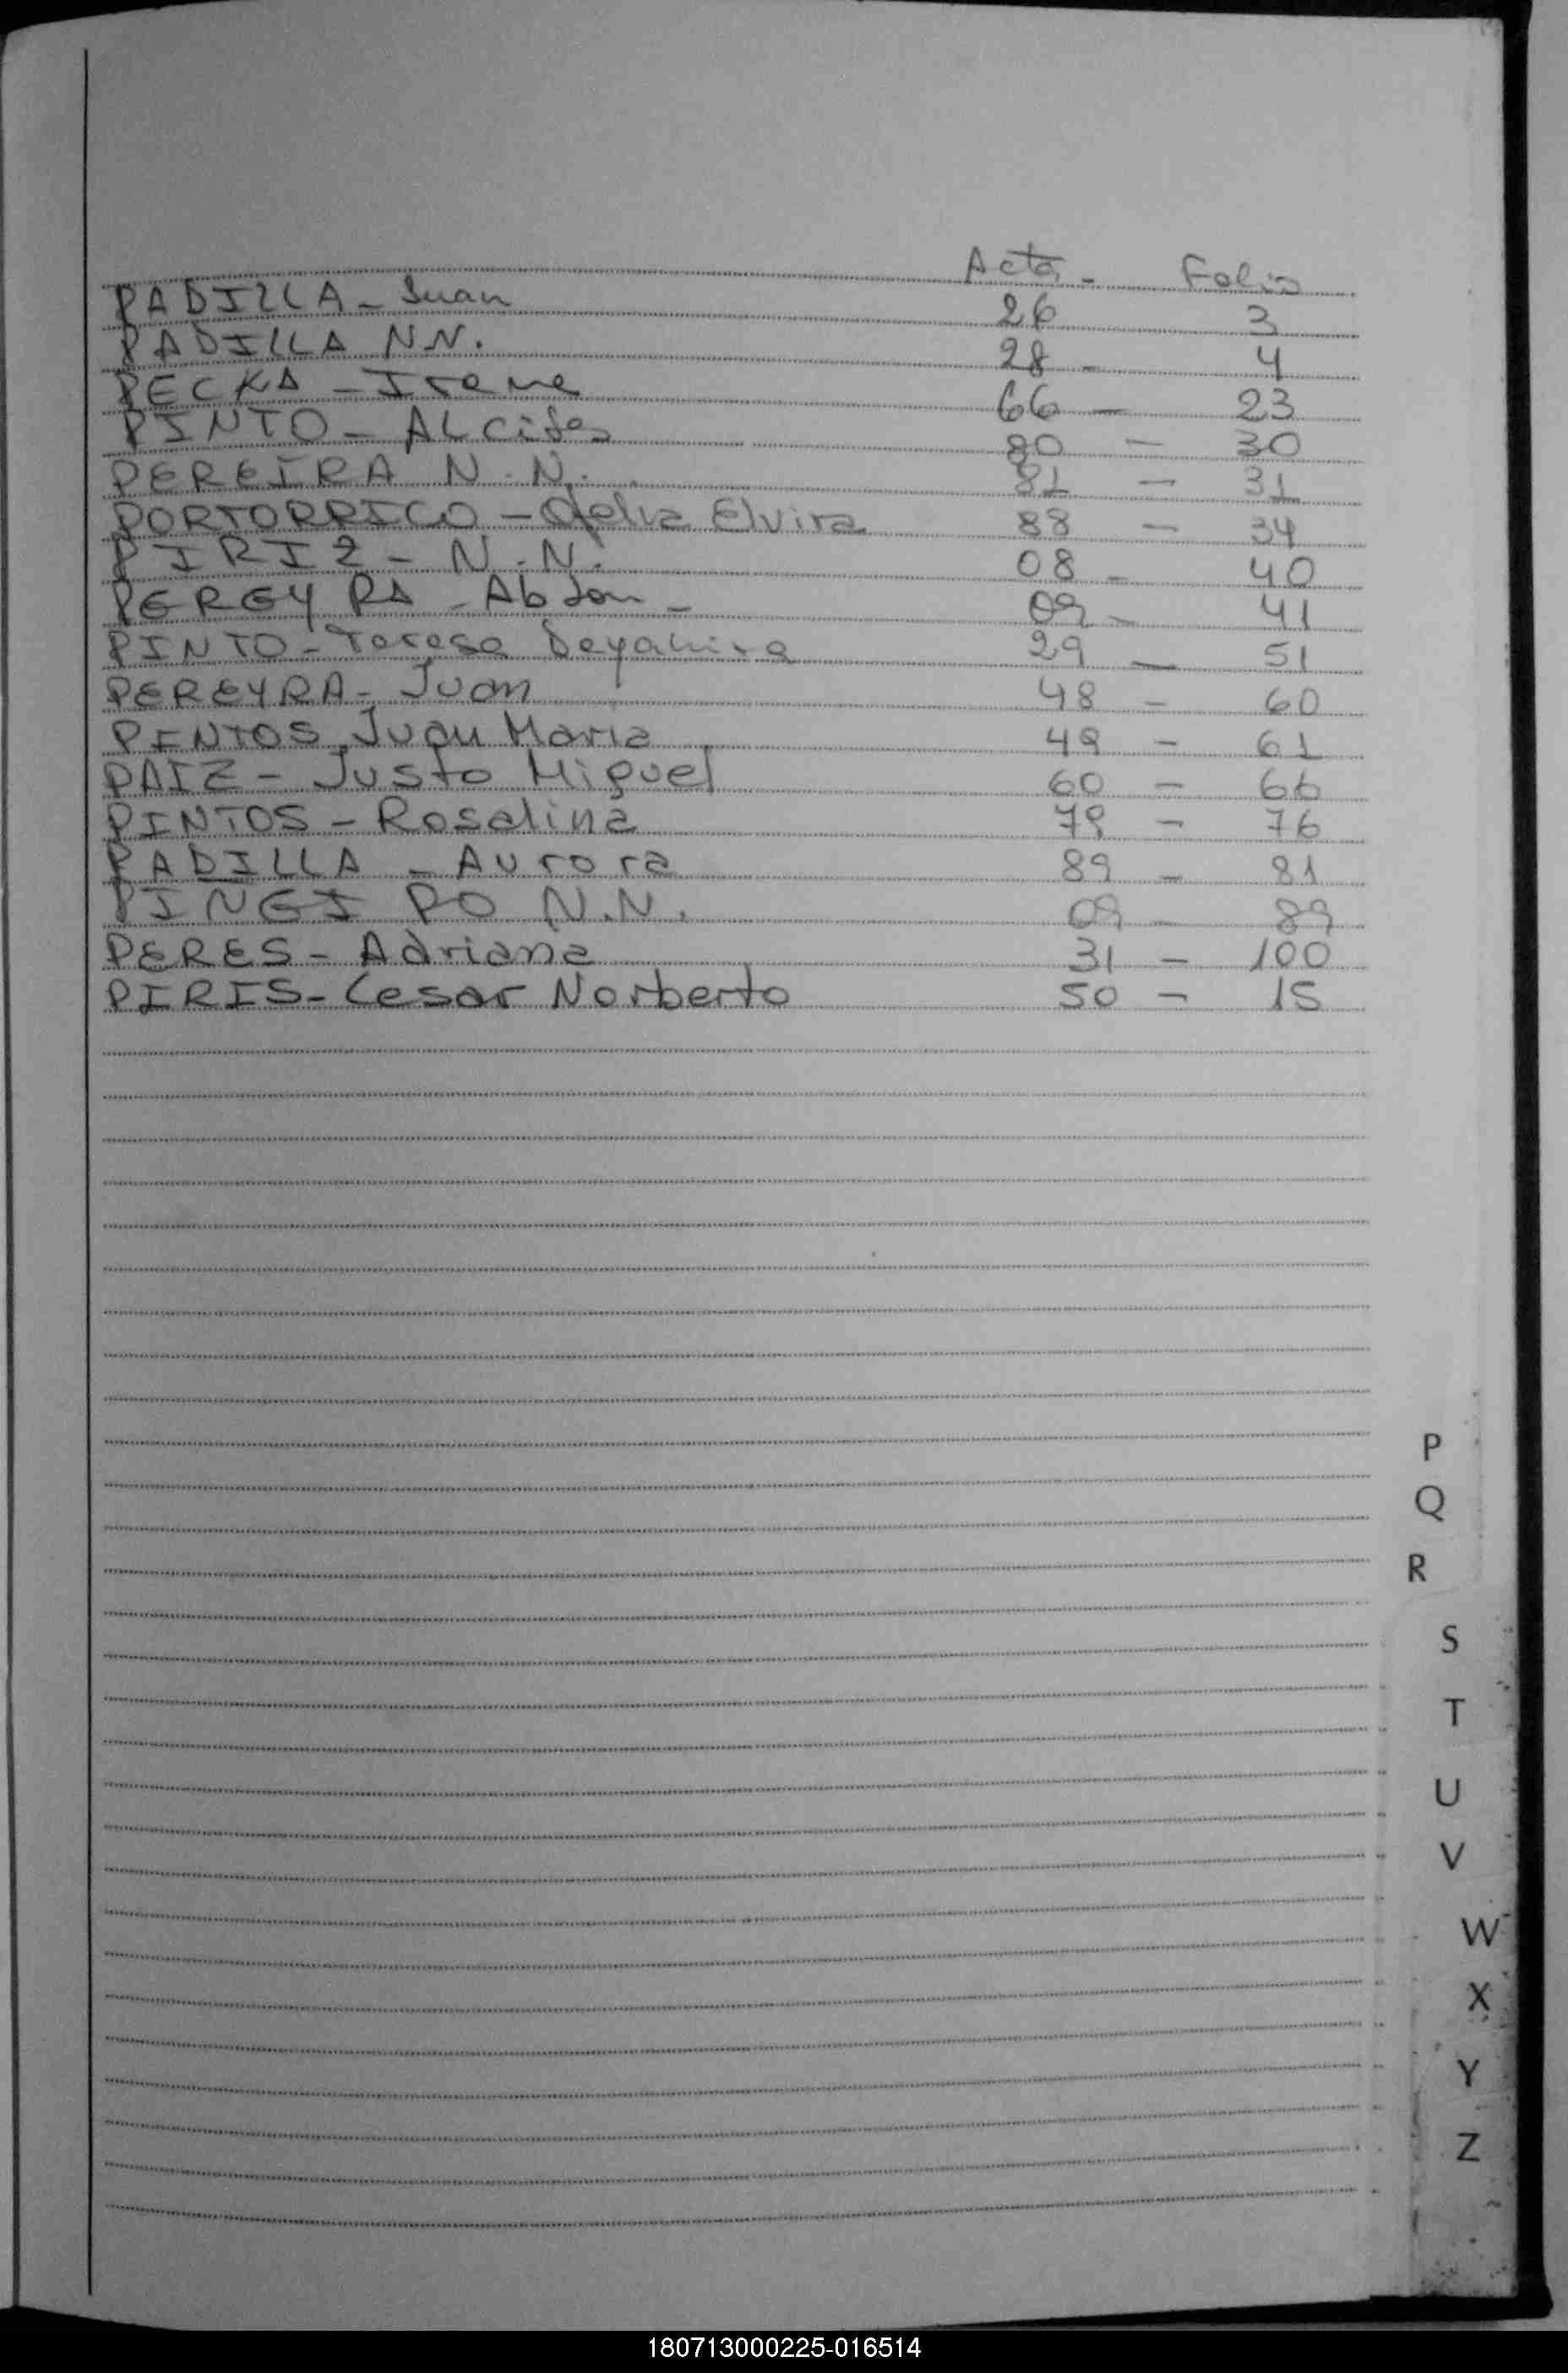 Acta - Folio
PADILLA - Juan 26 3
PADILLA N N. 28 - 4
PECKA - Irene 66 - 23
PINTO - ALcides 80 - 30
PEREIRA N. N. 81 - 31
PORTORRICO - Elvira 88 - 34
PIRIZ - N. N. 08 - 40
PEREYRA - Abdon - 09 - 41
PINTO - Teresa Deyanira 29 - 51
PEREYRA - Juan 48 - 60
PINTOS, Juan Maria 49 - 61
PAIZ - Justo Miguel 60 - 66
PINTOS - Rosalina 79 - 76
PADILLA - Aurora 89 - 81
N.N. 09 - 89
PERES - Adriana 31 - 100
PIRIS - Cesar Norberto 50 - 15
P
Q
R
S
T
U
V
W
X
Y
Z
180713000225-016514